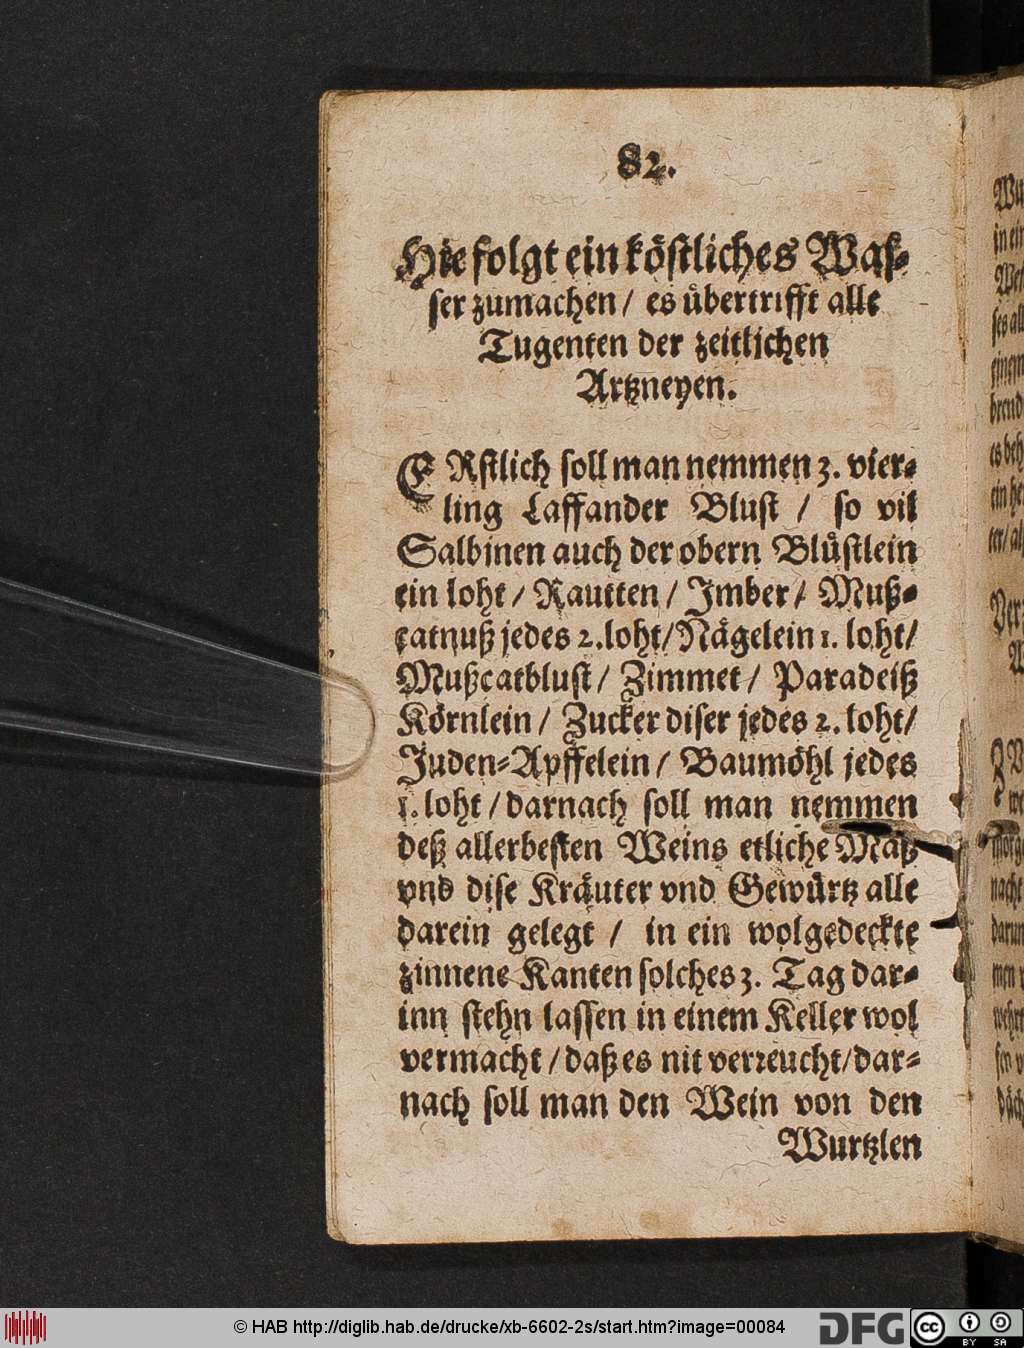 82.
Hie folgt ein köstliches Was-
ser zumachen / es übertrifft alle
Tugenten der zeitlichen
Artzneyen.
ERstlich soll man nemmen 3. vier-
ling Laffander Blust / so vil
Salbinen auch der obern Blüstlein
ein loht / Rautten / Imber / Muß-
catnuß jedes 2. loht / Nägelein 1. loht /
Mußcatblust / Zimmet / Paradeiß
Körnlein / Zucker diser jedes 2. loht /
Juden-Apffelein / Baumöhl jedes
1. loht / darnach soll man nemmen
deß allerbesten Weins etliche Maß
vnd dise Kräuter vnd Gewürtz alle
darein gelegt / in ein wolgedeckte
zinnene Kanten solches 3. Tag dar-
inn stehn lassen in einem Keller wol
vermacht / daß es nit verreucht / dar-
nach soll man den Wein von den
Wurtzlen
© HAB http://diglib.hab.de/drucke/xb-6602-2s/start.htm?image=00084
DFG
cc BY SA